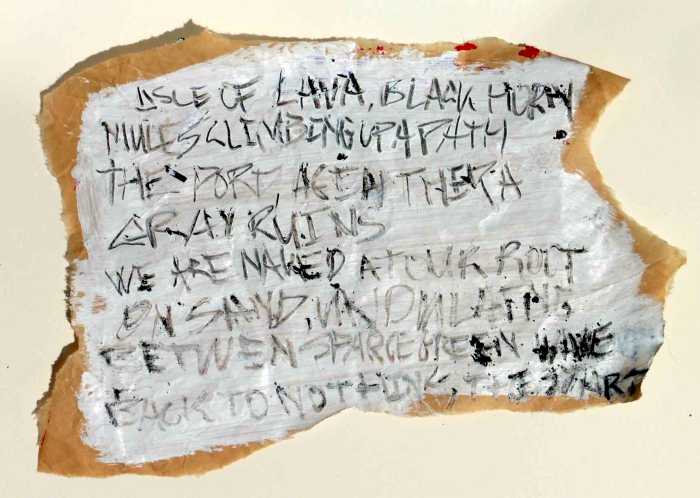 ISLE OF LAVA, BLACK HORN
MULES CLIMBING UP A PATH
THE PORT,
GRAY RUINS
WE ARE NAKED AT OUR ROOT
ON SAND, UNDULATING
BETWEEN SPARCE GREEN
BACK TO NOTHING, THE START